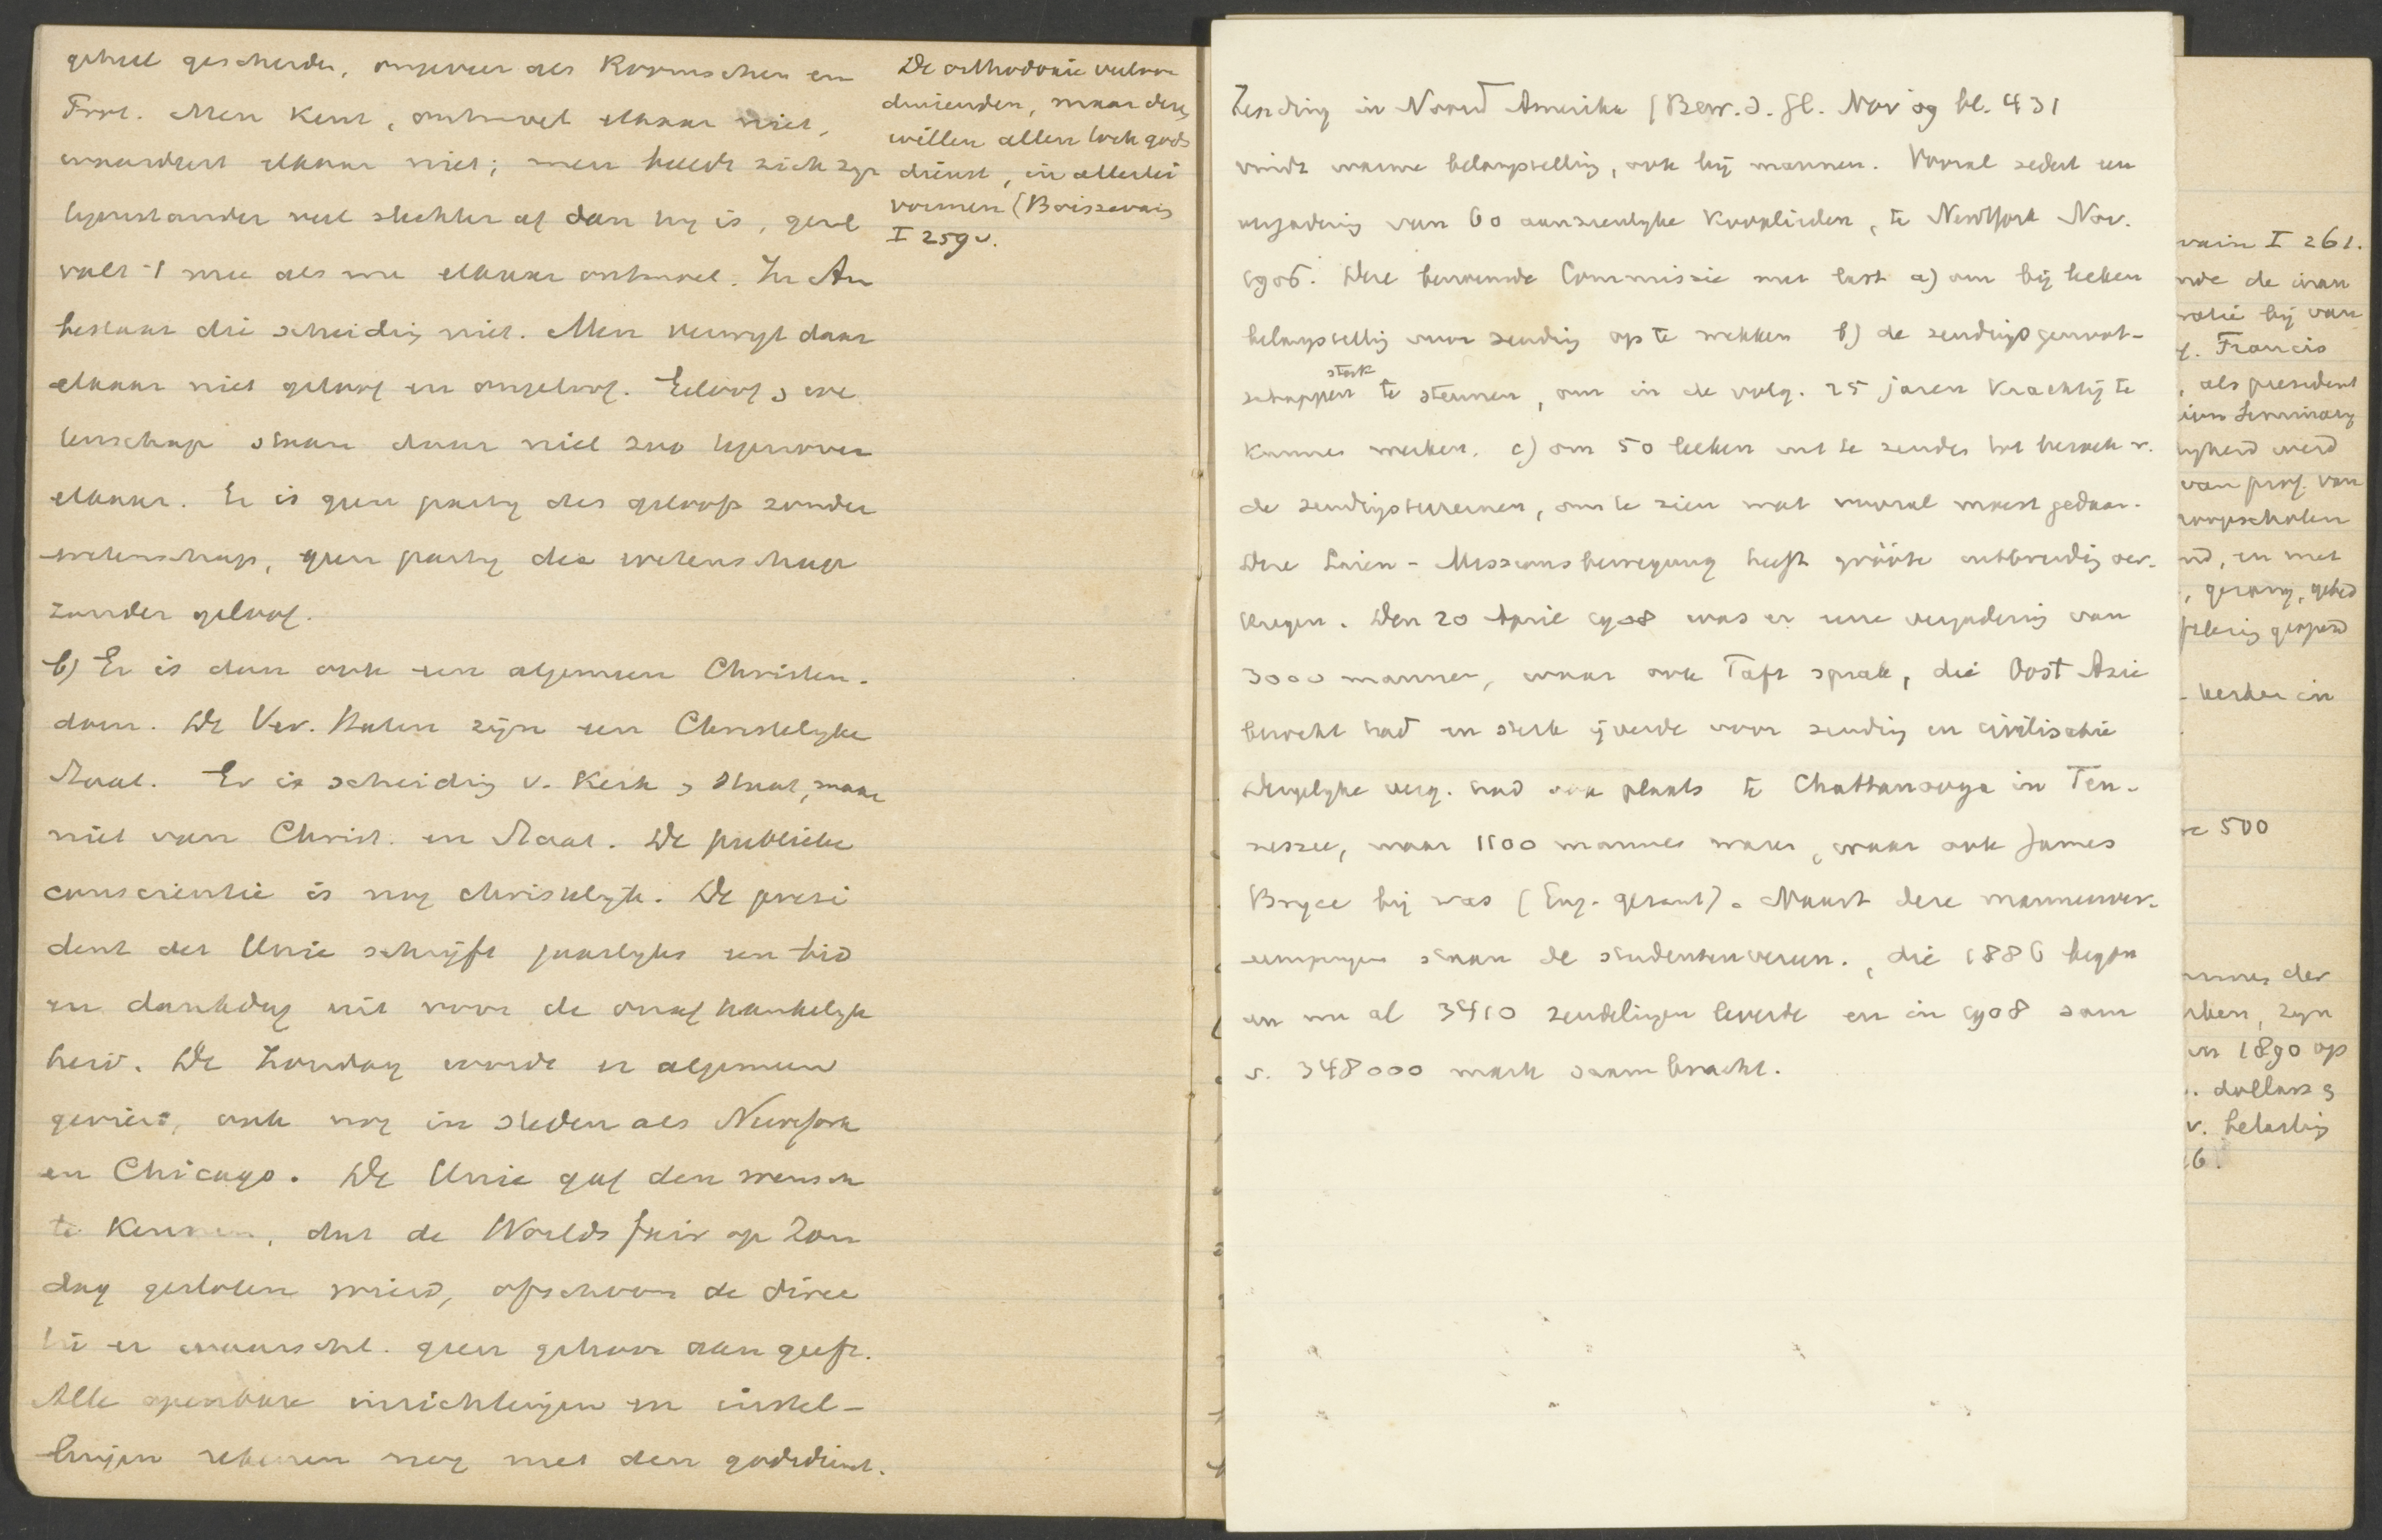 geheel gescheiden, ongeveer als Roomschen en
Prot. Men kent, ontmoet elkaar niet,
waardeert elkaar niet; men beeldt zich zyn
tegenstander veel slechter af dan hy is, geul
valt 't mee als we elkaar ontmoet. In Am
bestaat die scheiding niet. Men verwyt daar
elkaar niet geloof en ongeloof. Geloof & we
tenschap staan daar niet zoo tegenover
elkaar. Er is geen party des geloofs zonder
wetenschap, geen party der wetenschap
zonder geloof.
b) Er is dan ook een algemeen Christen-
dom. De Ver. Staten zijn een Christelyke
Staat. Er is scheiding v. Kerk & Staat, maar
niet van Christ. en Staat. De publieke
conscientie is nog christelyk. De presi
dent der Unie schrijft jaarlyks een bid
en dankdag uit voor de onafhankelyk
heid. De Zondag wordt er algemeen
gevierd, ook nog in steden als Newyork
en Chicago. De Unie gaf den wensch
te kennen, dat de Worlds fair op Zon
dag gesloten wierd, ofschoon de direc
tie er waarschl. geen gehoor aan geeft.
Alle openbare inrichtingen en instel-
lingen rekenen nog met den godsdienst.
De orthodoxie veelvou
dienenden, maar deze
willen allen toch gods
dienst, in allerlei
vormen (Boissevain
I 259v.
Zending in Noord Amerika (Bew. d. Gl. Nov 09 bl. 431
vindt warme belangstelling, ook bij mannen. Vooral sedert een
vergadering van 60 aanzienlyke Kooplieden, te NewYork Nov.
1906. Deze benoemde Commissie met last a) om bij leeken
belangstellig voor zending op te wekken b) de zendingsgenoot-
schappen sterk te steunen, om in de volg. 25 jaren krachtig te
kunnen werken. c) om 50 leeken uit te zenden tot bezoek v.
de zendingsterreinen, om te zien wat vooral moest gedaan.
Deze Laien-Missionsbewegung heeft grööte uitbreiding ver-
kregen. Den 20 April 1908 was er eene vergadering van
3000 mannen, waar ook Taft sprak, die Oost Azie
bezocht had en sterk ijverde voor zending en civilisatie
Dergelyke verg. had ook plaats te Chattanooga in Ten-
nessee, waar 1100 mannen waren, waar ook James
Bryce bij was (Eng. gezant). Naast deze mannenver-
eenigingen staan de studentenvereen., die 1886 begon
en nu al 3410 zendelingen leverde en in 1908 som
v. 348000 mark saambracht.
vain I 261.
nde de inau
ratie bij van
f. Francis
, als president
ion Seminary
lykheid werd
van prof. van
roopscholen
nd, en met
, gezang, gebed
kerken in
re 500
mmes der
rken, zyn
in 1890 op
. dollars &
v. belasting
16.